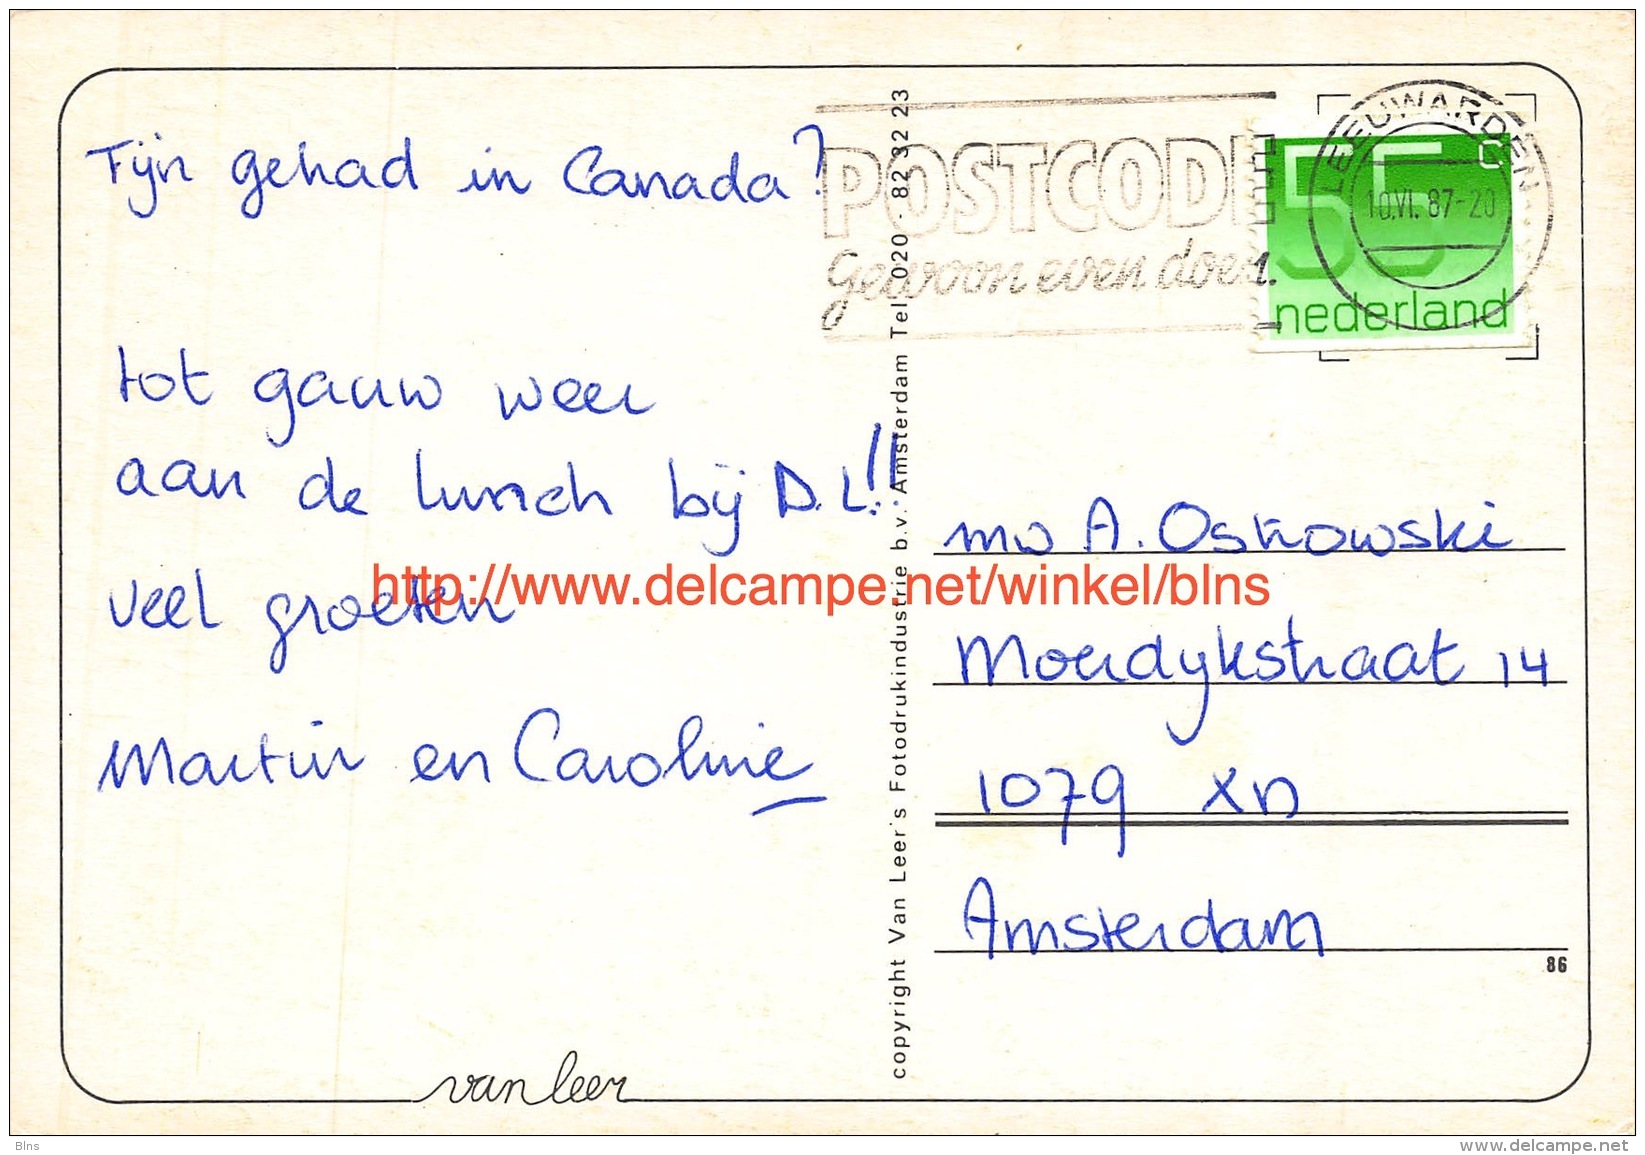 Fijn gehad in Canada?
tot gauw weer
aan de lunch bij D.L.!!
veel groeten
Martin en Caroline
van leer
copyright Van Leer's Fotodrukindustrie b.v. Amsterdam Tel. 020 - 82 32 23
POSTCODE
gewoon even doen.
LEEUWARDEN
10.VI.87-20
55 c
nederland
mw A. Ostrowski
Moerdijkstraat 14
1079 XN
Amsterdam
86
http://www.delcampe.net/winkel/blns
Blns
www.delcampe.net